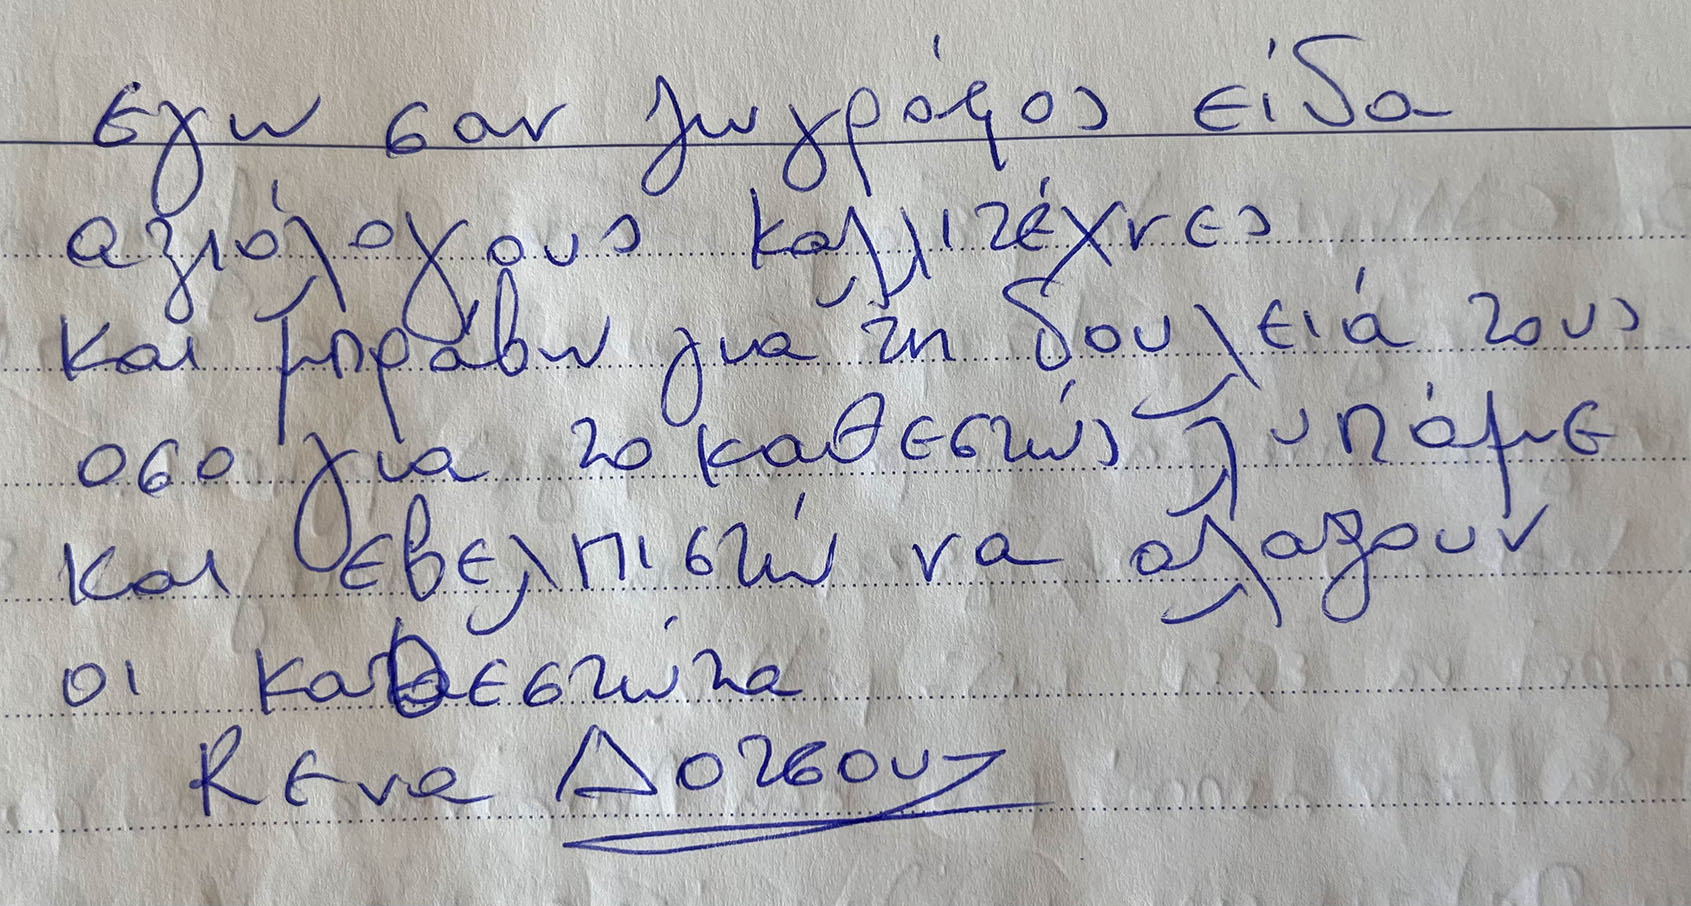 Εγω σαν ζωγράφος είδα
αξιόλογους καλλιτέχνες
και μπράβω για τη δουλειά τους
οσο για το καθεστώς λυπάμε
και εβελπιστώ να αλαξουν
οι καθεστώτα
Rενα